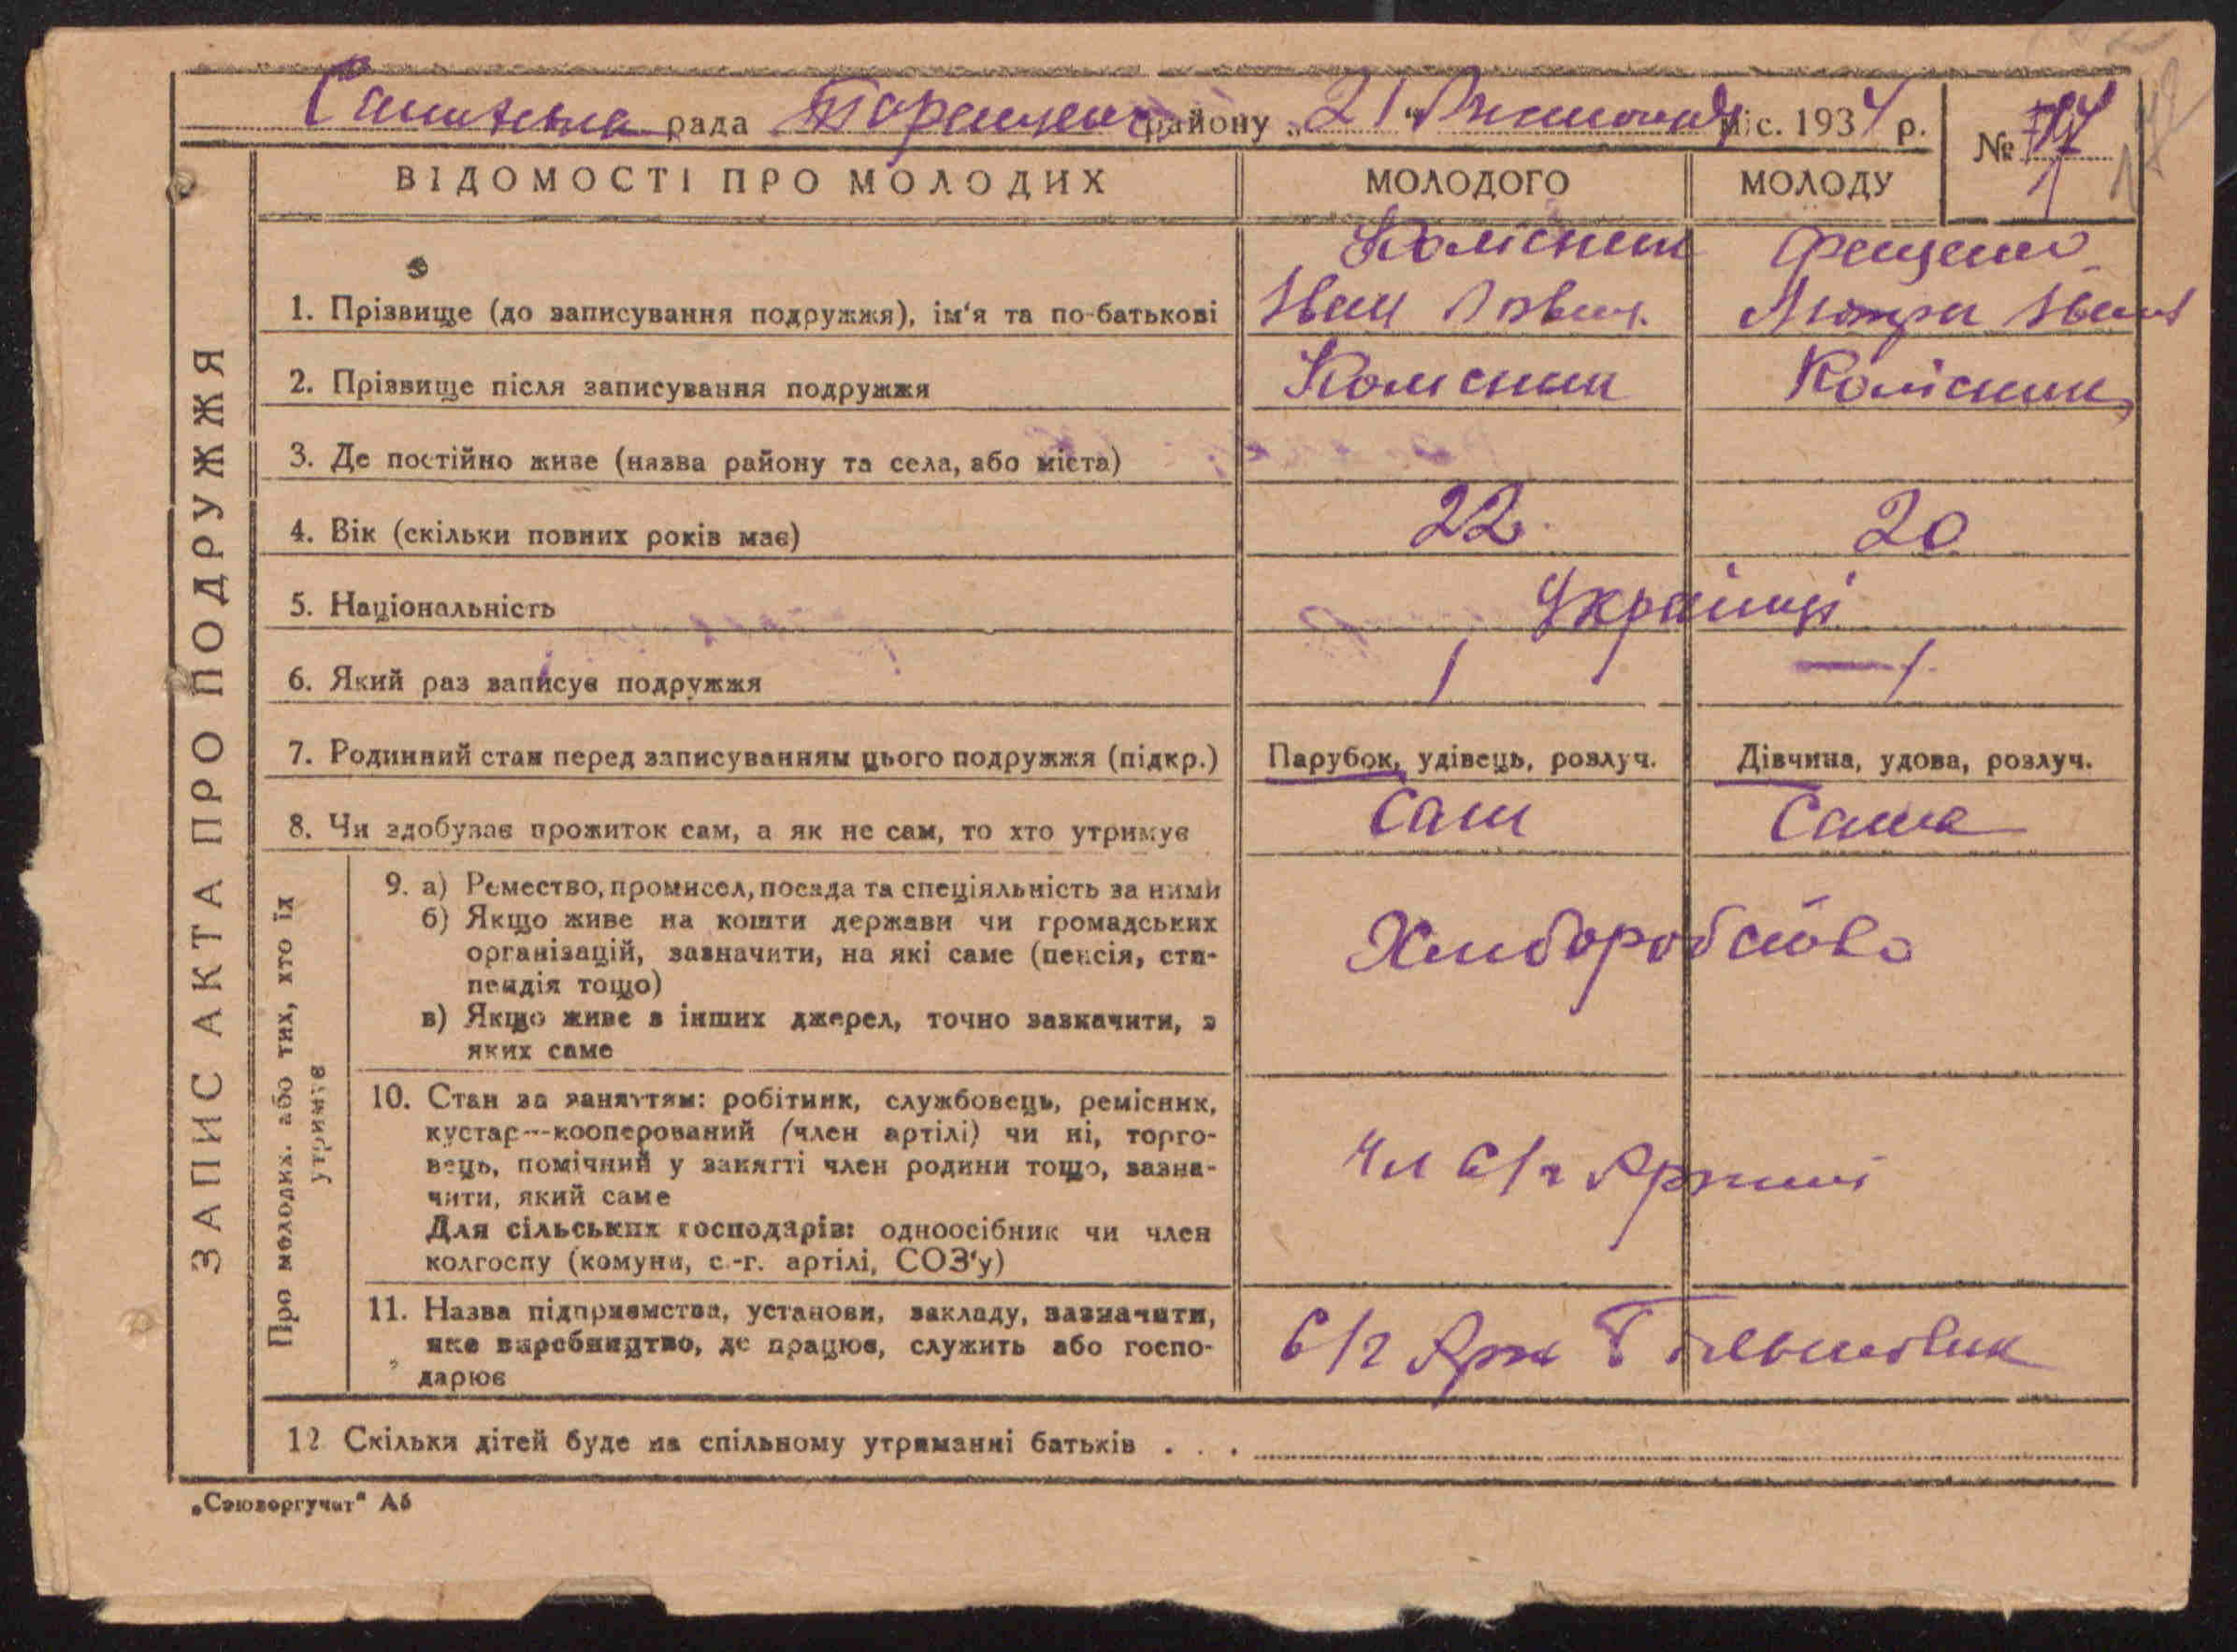 рада Таращанс району „ 21 " міс. 1934 р.
№
ВІДОМОСТІ ПРО МОЛОДИХ МОЛОДОГО МОЛОДУ
ЗАПИС АКТА ПРО ПОДРУЖЖЯ
Колісник
1. Прізвище (до записування подружжя), ім'я та по-батькові Іван
2. Прізвище після записування подружжя Колісник Колісник
3. Де постійно живе (назва району та села, або міста)
4. Вік (скільки повних років має) 22 20
5. Національність Українці
6. Який раз записує подружжя 1 — 1
7. Родинний стан перед записуванням цього подружжя (підкр.) Парубок, удівець, розлуч. Дівчина, удова, розлуч.
8. Чи здобуває прожиток сам, а як не сам, то хто утримує Сам Сама
Про молодих. або тих, хто їх
утримує
9. а) Ремество, промисел, посада та спеціяльність за ними
б) Якщо живе на кошти держави чи громадських
організацій, зазначити, на які саме (пенсія, сти-
пендія тощо)
в) Якщо живе з інших джерел, точно зазначити, з
яких саме
Хліборобство
10. Стан за заняттям: робітник, службовець, ремісник,
кустар—кооперований (член артілі) чи ні, торго-
вець, помічний у занятті член родини тощо, зазна-
чити, який саме
Для сільських господарів: одноосібник чи член
колгоспу (комуни, с.-г. артілі, СОЗ'у)
Чл с/г Артілі
11. Назва підприємства, установи, закладу, зазначити,
яке виробництво, де працює, служить або госпо-
дарює
с/г Арт Більшовик
12 Скільки дітей буде на спільному утриманні батьків . . .
„Союзоргучет" А5